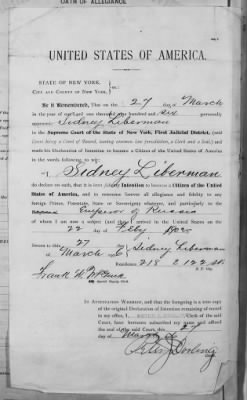 OATH OF ALLEGIANCE
UNITED STATES OF AMERICA.
STATE OF NEW YORK,
CITY AND COUNTY OF NEW YORK, } ss.:
Be it Remembered, That on the 27 day of March
in the year of our Lord one thousand nine hundred and six personally
appeared Sidney Liberman
in the Supreme Court of the State of New York, First Judicial District, (said
Court being a Court of Record, having common law jurisdiction, a Clerk and a Seal,) and
made his Declaration of Intention to become a Citizen of the United States of America
in the words following, to wit:
I, Sidney Liberman
do declare on oath, that it is bona fide my Intention to become a Citizen of the United
States of America, and to renounce forever all allegiance and fidelity to any
foreign Prince, Potentate, State or Sovereignty whatever, and particularly to the
Emperor of Russia
of whom I am now a subject arrived in the United States on the
22 day of
Sworn to this 27
March Sidney Liberman
Residence, 218 E 122 St.
N. Y. City
Frank W.
Special Deputy Clerk.
IN ATTESTATION WHEREOF, and that the foregoing is a true copy
of the original Declaration of Intention remaining of record
in my office, I, Clerk of the
said Court, have hereunto subscribed my name and affixed
the seal of the said Court, this 27
day of March